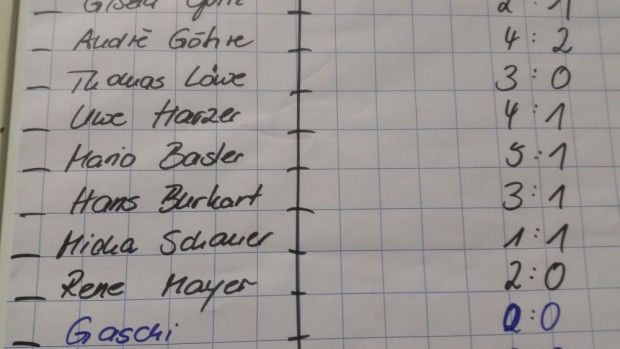 2:1
André Göhre 4:2
Thomas Löwe 3:0
Uwe Harzer 4:1
Mario Basler 5:1
Hans Burkart 3:1
Micha Schauer 1:1
Rene Mayer 2:0
Gaschi 0:0